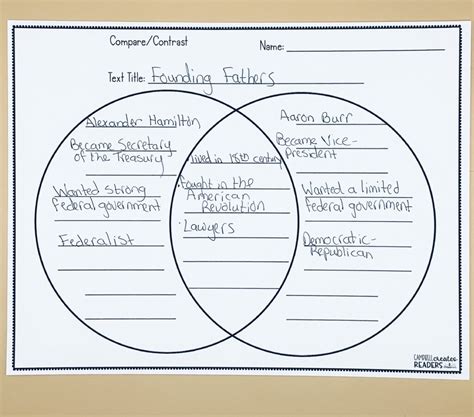 Compare/Contrast
Name:
Text Title: Founding Fathers
Alexander Hamilton
Became Secretary
of the Treasury
Wanted strong
federal government
Federalist
• lived in 18th century
• fought in the
American
Revolution
• Lawyers
Aaron Burr
Became Vice-
President
Wanted a limited
federal government
Democratic-
Republican
CAMPBELL creates
READERS